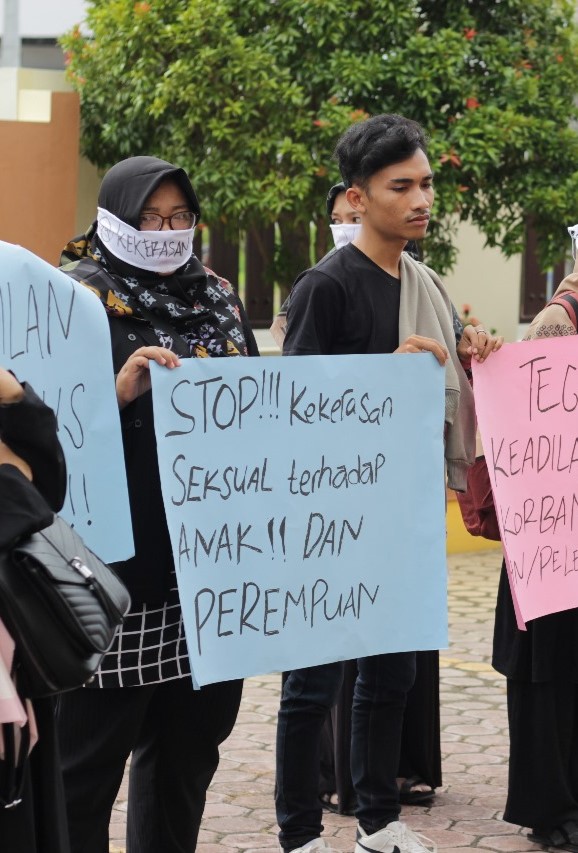 KEKERASAN
STOP!!! Kekerasan
SEKSUAL terhadap
ANAK!! DAN
PEREMPUAN
ILAN
KS
!!
TEG
KEADILA
KORBAN
N/PELE